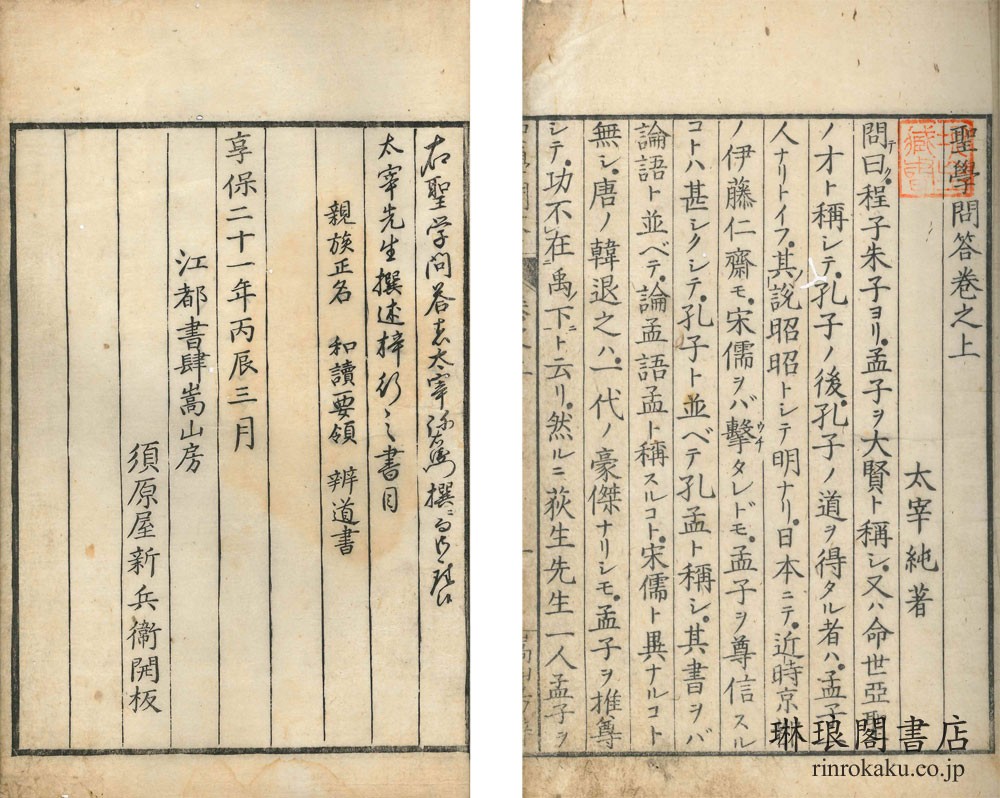 聖學問答卷之上
太宰純著
問曰程子朱子ヨリ孟子ヲ大賢ト稱シ又ハ命世亞聖
ノ才ト稱シテ孔子ノ後孔子ノ道ヲ得タル者ハ孟子
人ナリトイフ其說昭昭トシテ明ナリ日本ニテ近時京
ノ伊藤仁齋モ宋儒ヲバ擊タレドモ孟子ヲ尊信スル
コトハ甚シクシテ孔子ト並ベテ孔孟ト稱シ其書ヲバ
論語ト並ベテ論孟語孟ト稱スルコト宋儒ト異ナルコト
無シ唐ノ韓退之ハ一代ノ豪傑ナリシモ孟子ヲ推尊
シテ功不在禹下ト云リ然ルニ荻生先生一人孟子ヲ
右聖学問答者太宰弥右衛門撰
太宰先生撰述梓行之書目
親族正名 和讀要領 辨道書
享保二十一年丙辰三月
江都書肆嵩山房
須原屋新兵衞開板
琳琅閣書店
rinrokaku.co.jp